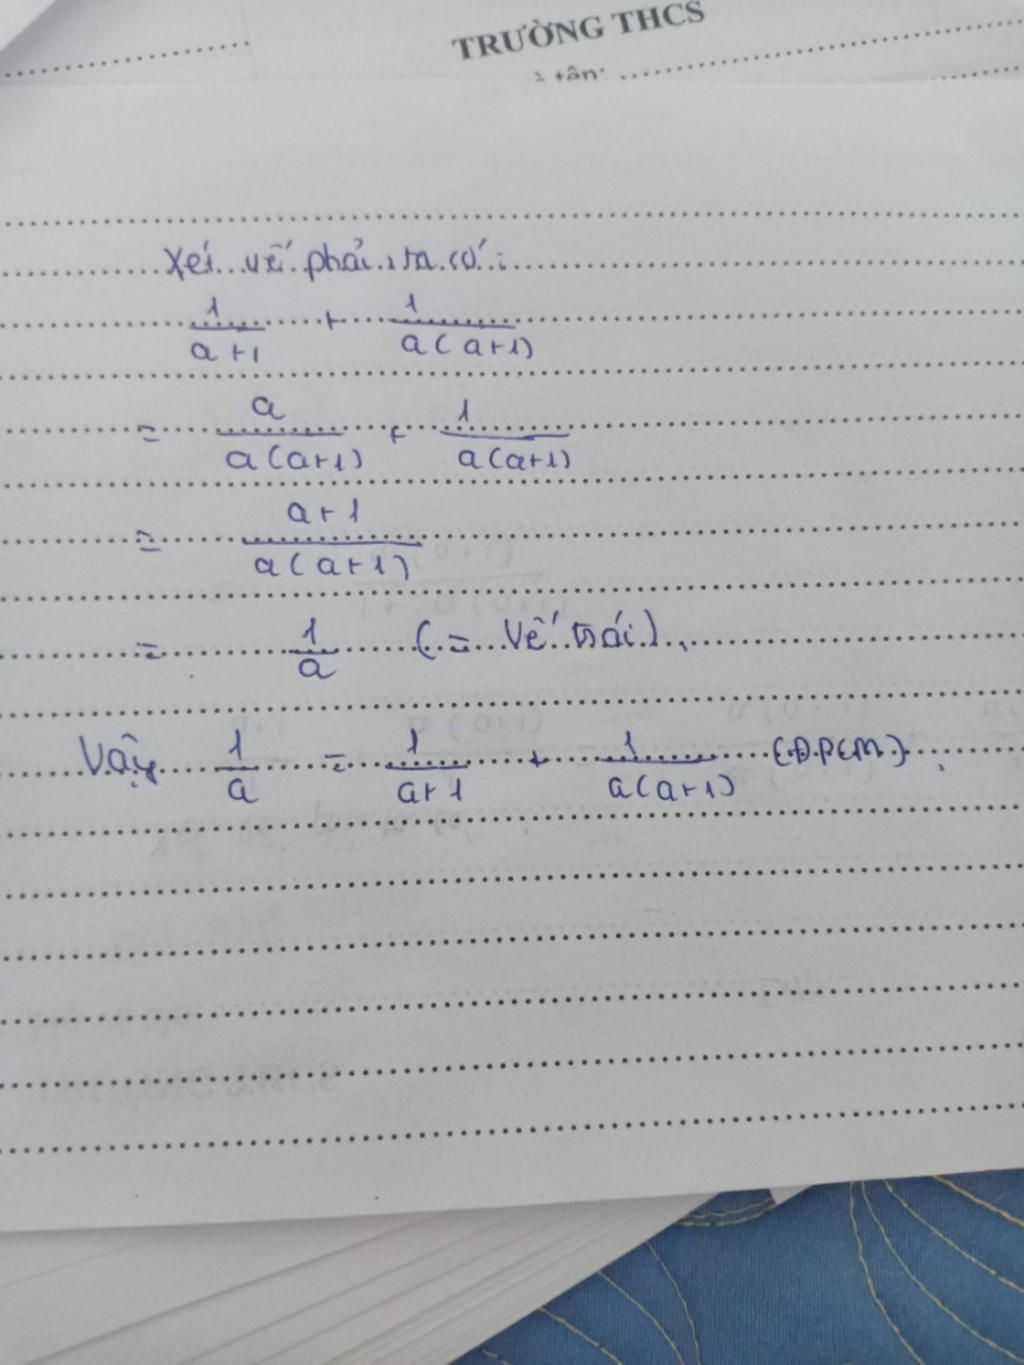 TRƯỜNG THCS
tên:
Xét vế phải, ta có:
1/(a+1) + 1/(a(a+1))
= a/(a(a+1)) + 1/(a(a+1))
= (a+1)/(a(a+1))
= 1/a (= Vế trái).
Vậy 1/a = 1/(a+1) + 1/(a(a+1)) (Đ.P.C.M).